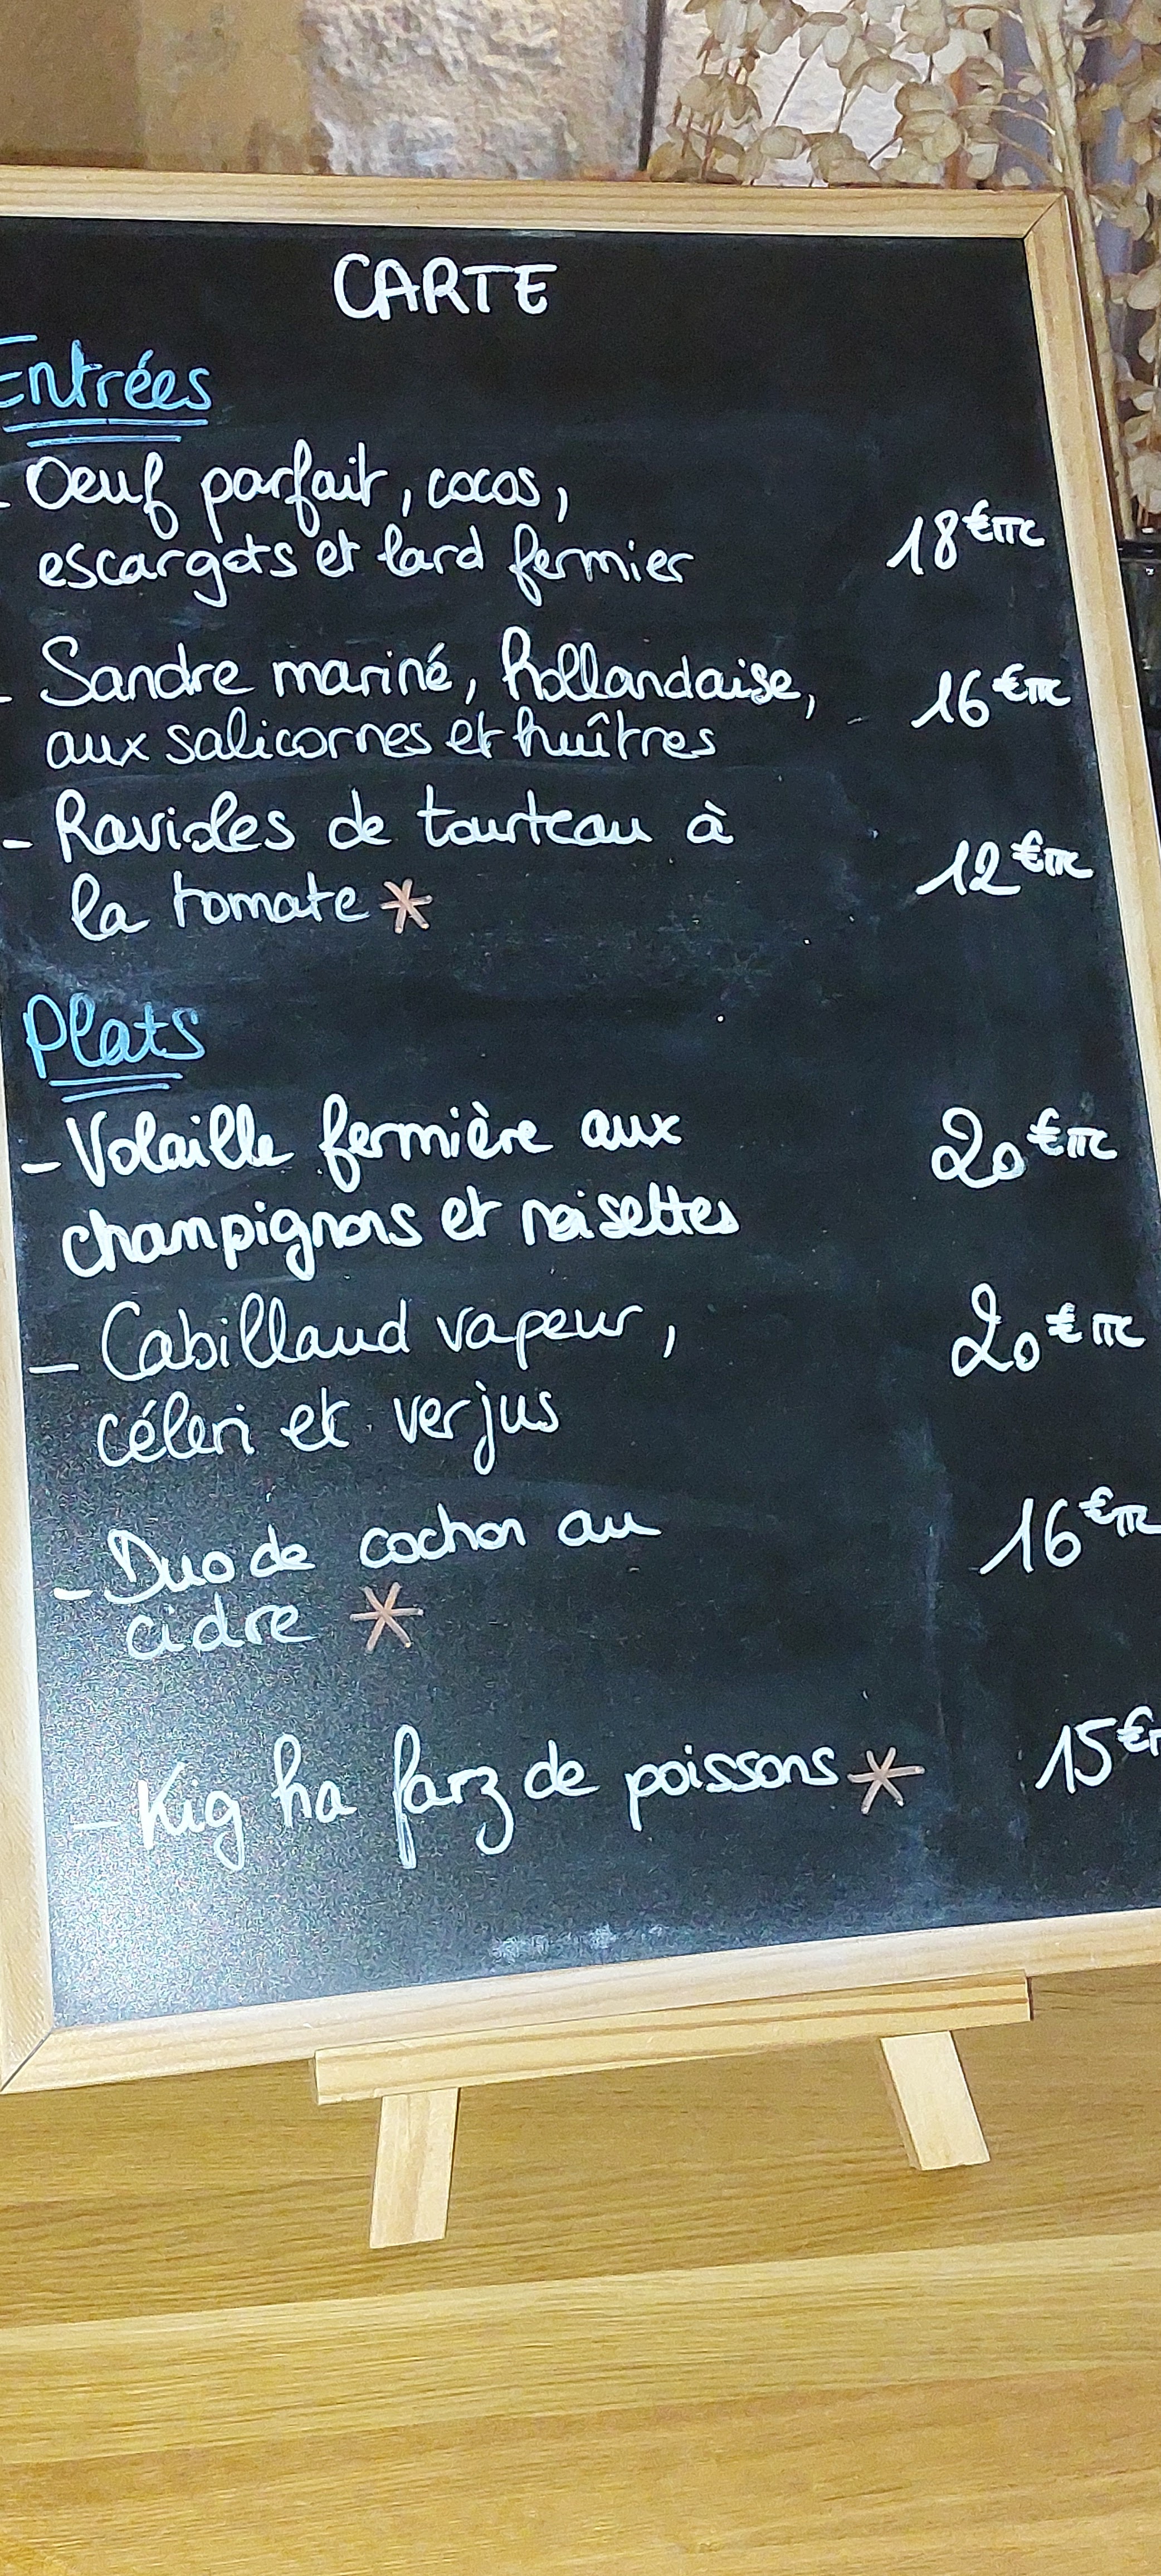 CARTE
Entrées
- Oeuf parfait, cocos,
escargots et lard fermier 18 €TTC
- Sandre mariné, hollandaise, 16 €TTC
aux salicornes et huîtres
- Ravioles de tourteau à
la tomate * 12 €TTC
Plats
- Volaille fermière aux 20 €TTC
champignons et noisettes
- Cabillaud vapeur, 20 €TTC
céleri et verjus
- Duo de cochon au 16 €TTC
cidre *
- Kig ha farz de poissons * 15 €T